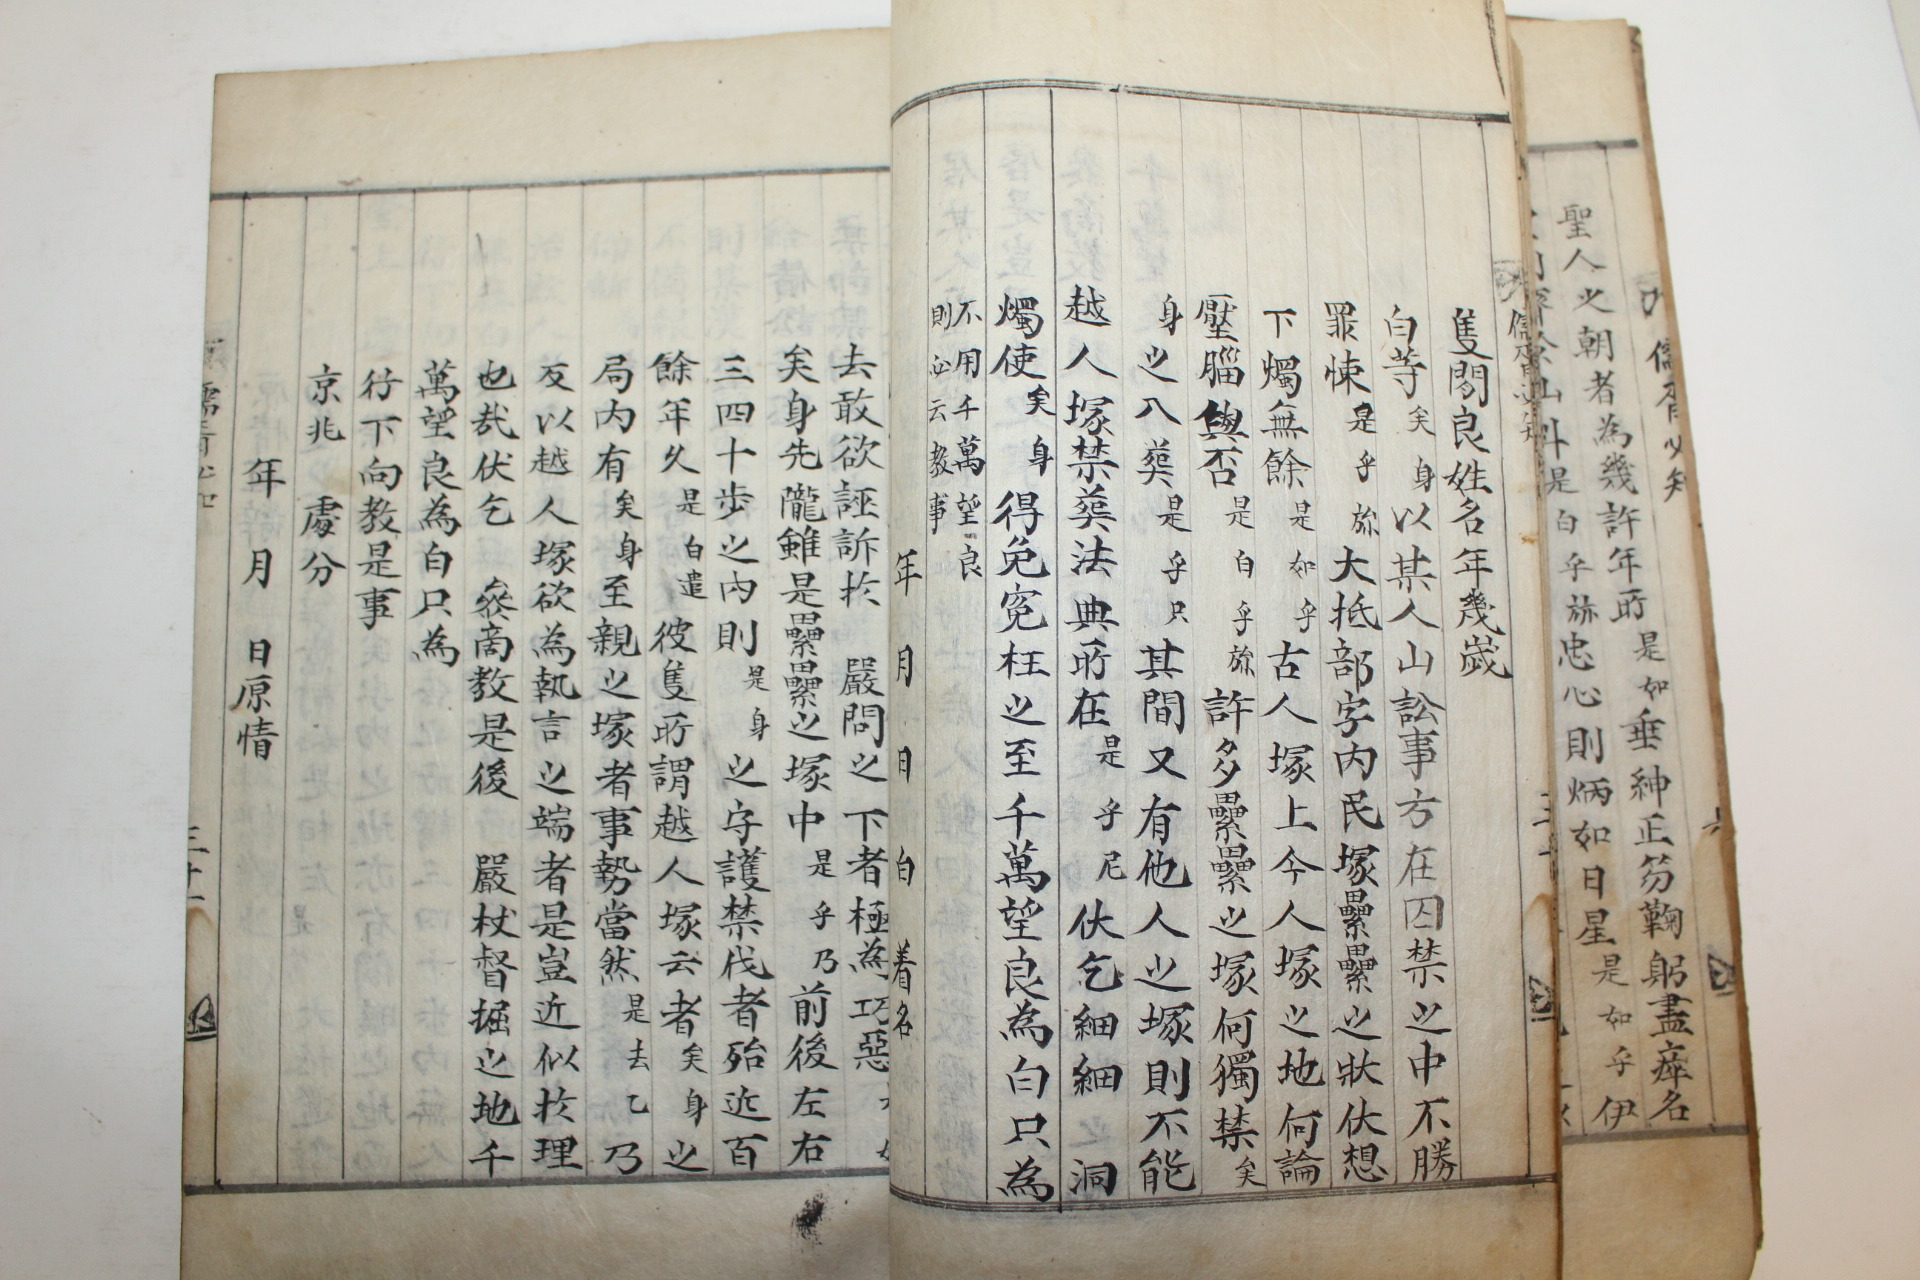 聖人之朝者為幾許年所是如垂紳正笏鞠躬盡瘁名
是白乎旀忠心則炳如日星是如乎伊
儒胥必知
隻閔良姓名年幾歲
白等矣身以某人山訟事方在囚禁之中不勝
罪悚是乎旀大抵部字內民塚纍纍之狀伏想
下燭無餘是如乎古人塚上今人塚之地何論
壓腦與否是白乎旀許多纍纍之塚何獨禁矣
身之入葬是乎只其間又有他人之塚則不能
越人塚禁葬法典所在是乎尼伏乞細細洞
燭使矣身得免冤枉之至千萬望良為白只為
不用千萬望良
則必云教事
年月日白着名
去敢欲誣訴於嚴問之下者極為巧惡
矣身先隴雖是纍纍之塚中是乎乃前後左右
三四十步之內則是身之守護禁伐者殆近百
餘年久是白遣彼隻所謂越人塚云者矣身之
局內有矣身至親之塚者事勢當然是去乙乃
反以越人塚欲為執言之端者是豈近似於理
也哉伏乞參商教是後嚴杖督掘之地千
萬望良為白只為
行下向教是事
京兆處分
年月日原情